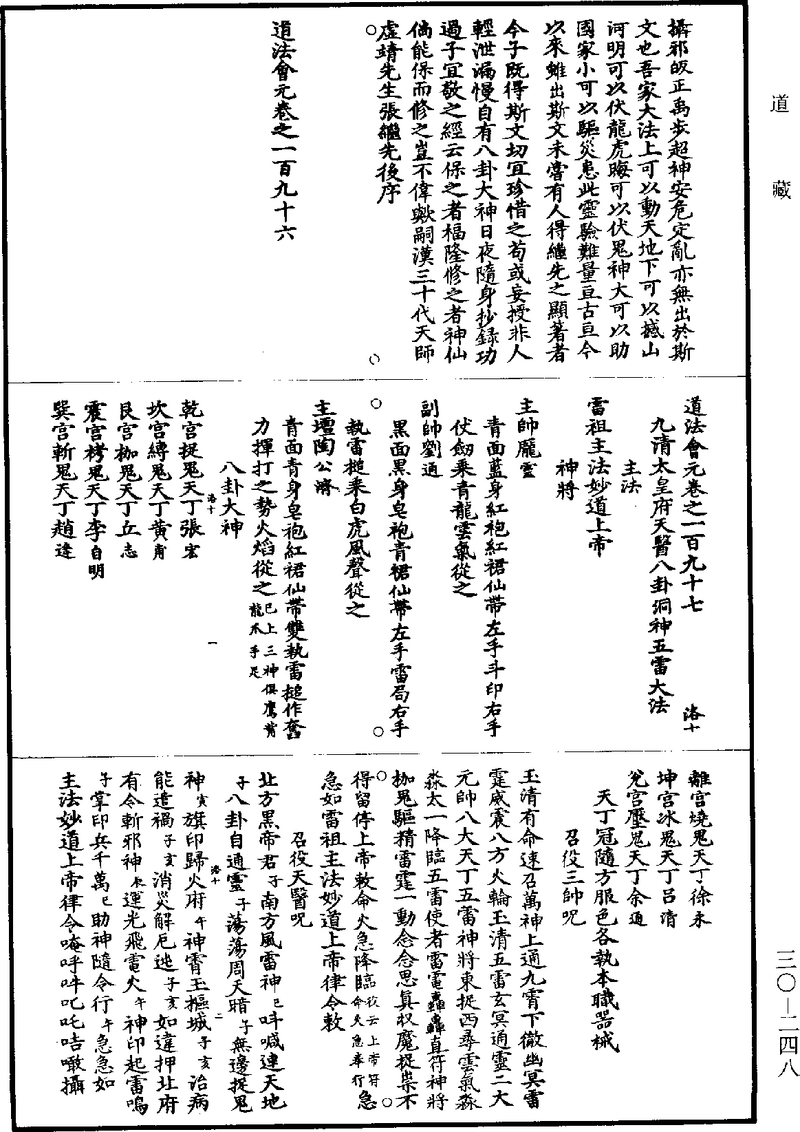 道藏
攝邪皈正禹步超神安危定亂亦無出於斯
文也吾家大法上可以動天地下可以撼山
河明可以伏龍虎晦可以伏鬼神大可以助
國家小可以驅災患此靈驗難量亘古亘今
以來雖出斯文未嘗有人得繼先之顯著者
今子既得斯文切宜珍惜之苟或妄授非人
輕泄漏慢自有八卦大神日夜隨身抄錄功
過子宜敬之經云保之者福隆修之者神仙
倘能保而修之豈不偉歟嗣漢三十代天師
虛靖先生張繼先後序
道法會元卷之一百九十六
道法會元卷之一百九十七 洛十
九清太皇府天醫八卦洞神五雷大法
主法
雷祖主法妙道上帝
神將
主帥龐靈
青面藍身紅袍紅裙仙帶左手斗印右手
仗劔乘青龍雲氣從之
副帥劉通
黑面黑身皂袍青裙仙帶左手雷局右手
執雷槌乘白虎風聲從之
主壇陶公濟
青面青身皂袍紅裙仙帶雙執雷槌作奮
力揮打之勢火焰從之已上三神俱鷹觜龍爪手足
八卦大神
乾宮捉鬼天丁張宏
洛十 一
坎宮縛鬼天丁黃甯
艮宮枷鬼天丁丘志
震宮栲鬼天丁李自明
巽宮斬鬼天丁趙達
離宮燒鬼天丁徐永
坤宮冰鬼天丁呂清
兌宮壓鬼天丁余通
天丁冠隨方服色各執本職器械
召役三帥呪
玉清有命速召萬神上通九霄下徹幽冥雷
霆威震八方火輪玉清五雷玄冥通靈二大
元帥八大天丁五雷神將東捉西尋雲氣森
森太一降臨五雷使者雷電轟轟直符神將
枷鬼驅精雷霆一動念念思真収魔捉祟不
得留停上帝敕命火急降臨一本云上帝符命火急奉行急
急如雷祖主法妙道上帝律令敕
召役天醫呪
北方黑帝君子南方風雷神巳呌喊連天地
子八卦自通靈子蕩蕩周天暗子無邊捉鬼
洛十 二
神亥旗印歸火府午神霄玉樞城子亥治病
能遣禍子亥消災解厄迍子亥如違押北府
有令斬邪神辰運光飛電火午神印起雷鳴
子掌印兵千萬巳助神隨令行午急急如
主法妙道上帝律令唵呼吽吃吒咭噉攝
三〇—二四八